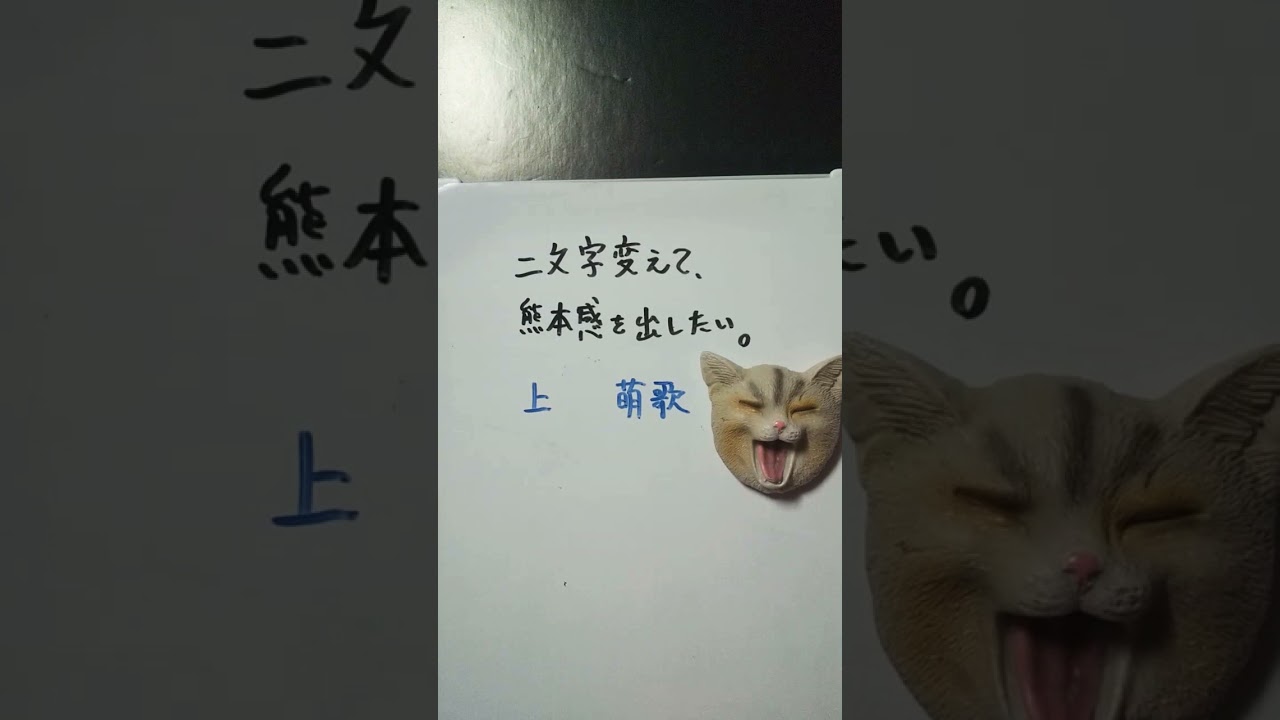 二文字変えて、
熊本感を出したい。
上　萌歌